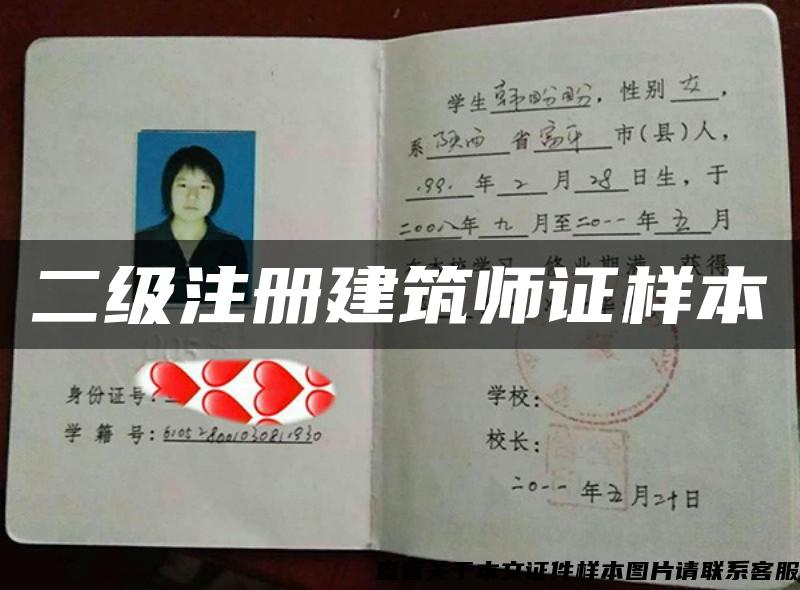 学生韩盼盼，性别女，
系陕西省富平市(县)人，
1991年2月28日生，于
二00八年九月至二0一一年五月
在本校学习 修业期满 获得
二级注册建筑师证样本
身份证号：
学籍号：6105280010308111930
学校：
校长：
二0一一年五月二十日
查看关于本文证件样本图片请联系客服